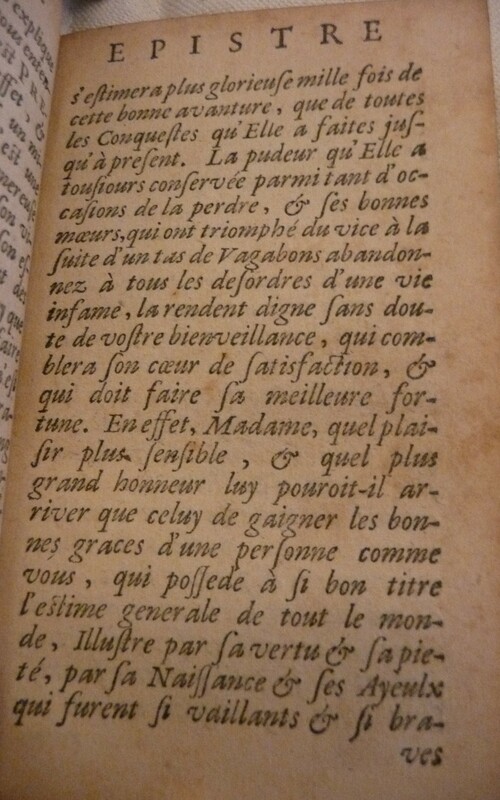 explique
EPISTRE
s'estimera plus glorieuſe mille fois de
cette bonne avanture, que de toutes
les Conqueſtes qu'Elle a faites juſ-
qu'à preſent. La pudeur qu'Elle a
touſiours conſervée parmi tant d'oc-
caſions de la perdre, & ſes bonnes
mœurs, qui ont triomphé du vice à la
ſuite d'un tas de Vagabons abandon-
nez à tous les deſordres d'une vie
infame, la rendent digne ſans dou-
te de voſtre bienveillance, qui com-
blera ſon cœur de ſatisfaction, &
qui doit faire ſa meilleure for-
tune. En effet, Madame, quel plai-
ſir plus ſenſible, & quel plus
grand honneur luy pouroit-il ar-
river que celuy de gaigner les bon-
nes graces d'une perſonne comme
vous, qui poſſede à ſi bon titre
l'eſtime generale de tout le mon-
de, Illuſtre par ſa vertu & ſa pie-
té, par ſa Naiſſance & ſes Ayeulx
qui furent ſi vaillants & ſi bra-
ves